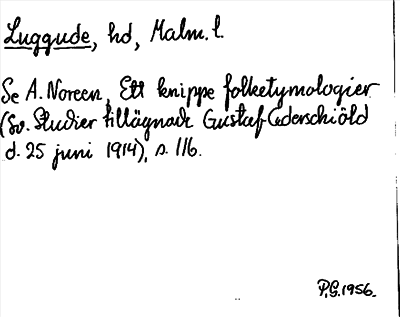 Luggude, hd, Malm. l.
Se A. Noreen, Ett knippe folketymologier
(Sv. Studier tillägnade Gustaf Cederschiöld
d. 25 juni 1914), s. 116.
P.G. 1956.